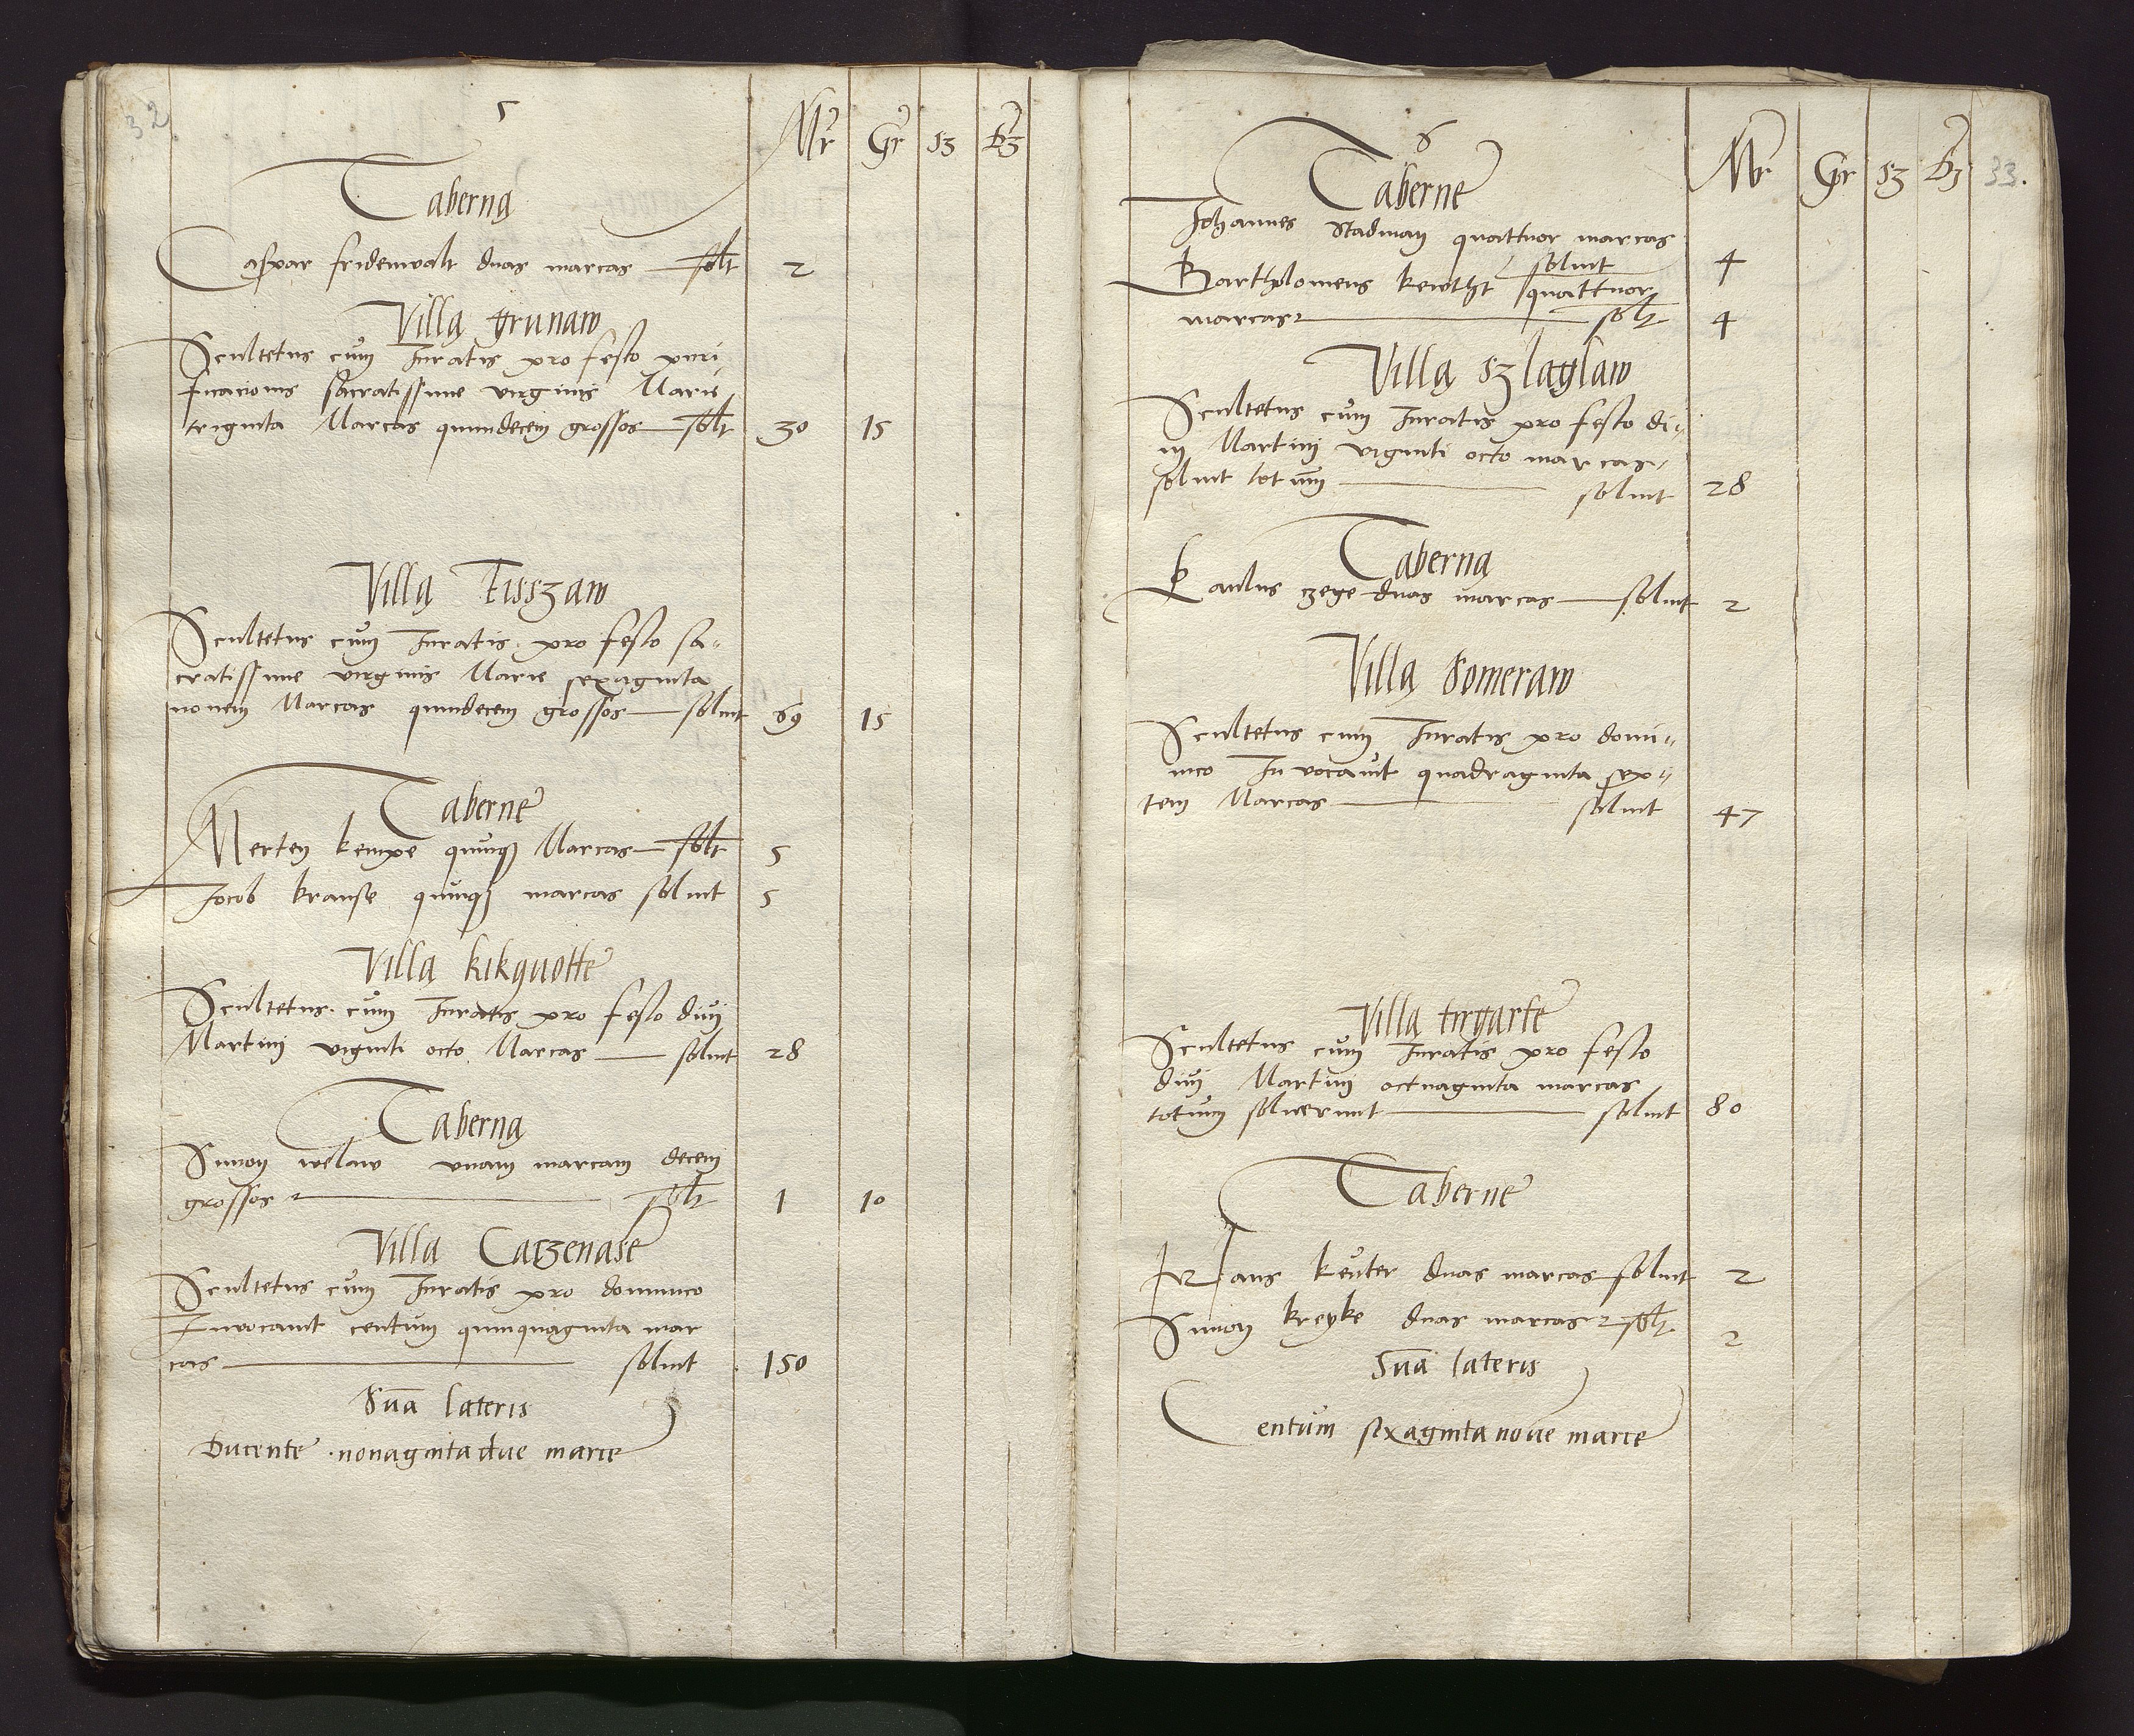 32
5
Mr Gr sz
Taberna
Caspar fridenwalt duas marcas solt 2
Villa Grunaw
Scultetus cum Iuratis pro festo puri
ficacionis sacratissime virginis Marie
triginta Marcas quindecem grossos solt 30 15
Villa Tisszaw
Scultetus cum Iuratis pro festo sa-
cratissime virginis Marie sexaginta
novem Marcas quindecem grossos soluit 69 15
Taberne
Merten kempe quinq3 Marcas solt 5
Jocob kranse quinq3 marcas soluit 5
Villa kikquotte
Scultetus cum Iuratis pro festo divi
Martini viginti octo Marcas soluit 28
Taberna
Simon welaw unam marcam decem
grossos solt 1 10
Villa Caczenase
Scultetus cum Iuratis pro dominico
Invocauit centum quinquaginta mar
cas soluit 150
Suma lateris
Ducente nonaginta due marce
6
Mr Gr sz 33.
Taberne
Johannes Stadman quattuor marcas
soluit 4
Bartholomeus kewtht quattuor
marcas solt 4
Villa Szlaglaw
Scultetus cum Iuratis pro festo di-
vi Martini viginti octo marcas
soluit totum soluit 28
Taberna
Paulus czege duas marcas soluit 2
Villa Someraw
Scultetus cum Iuratis pro domi-
nico Invocauit quadraginta sep-
tem Marcas soluit 47
Villa tirgarte
Scultetus cum Iuratis pro festo
divi Martini octuaginta marcas
totum soluerunt soluit 80
Taberne
Hans keuter duas marcas soluit 2
Simon kreyke duas marcas solt 2
Suma lateris
Centum sexaginta nove marce